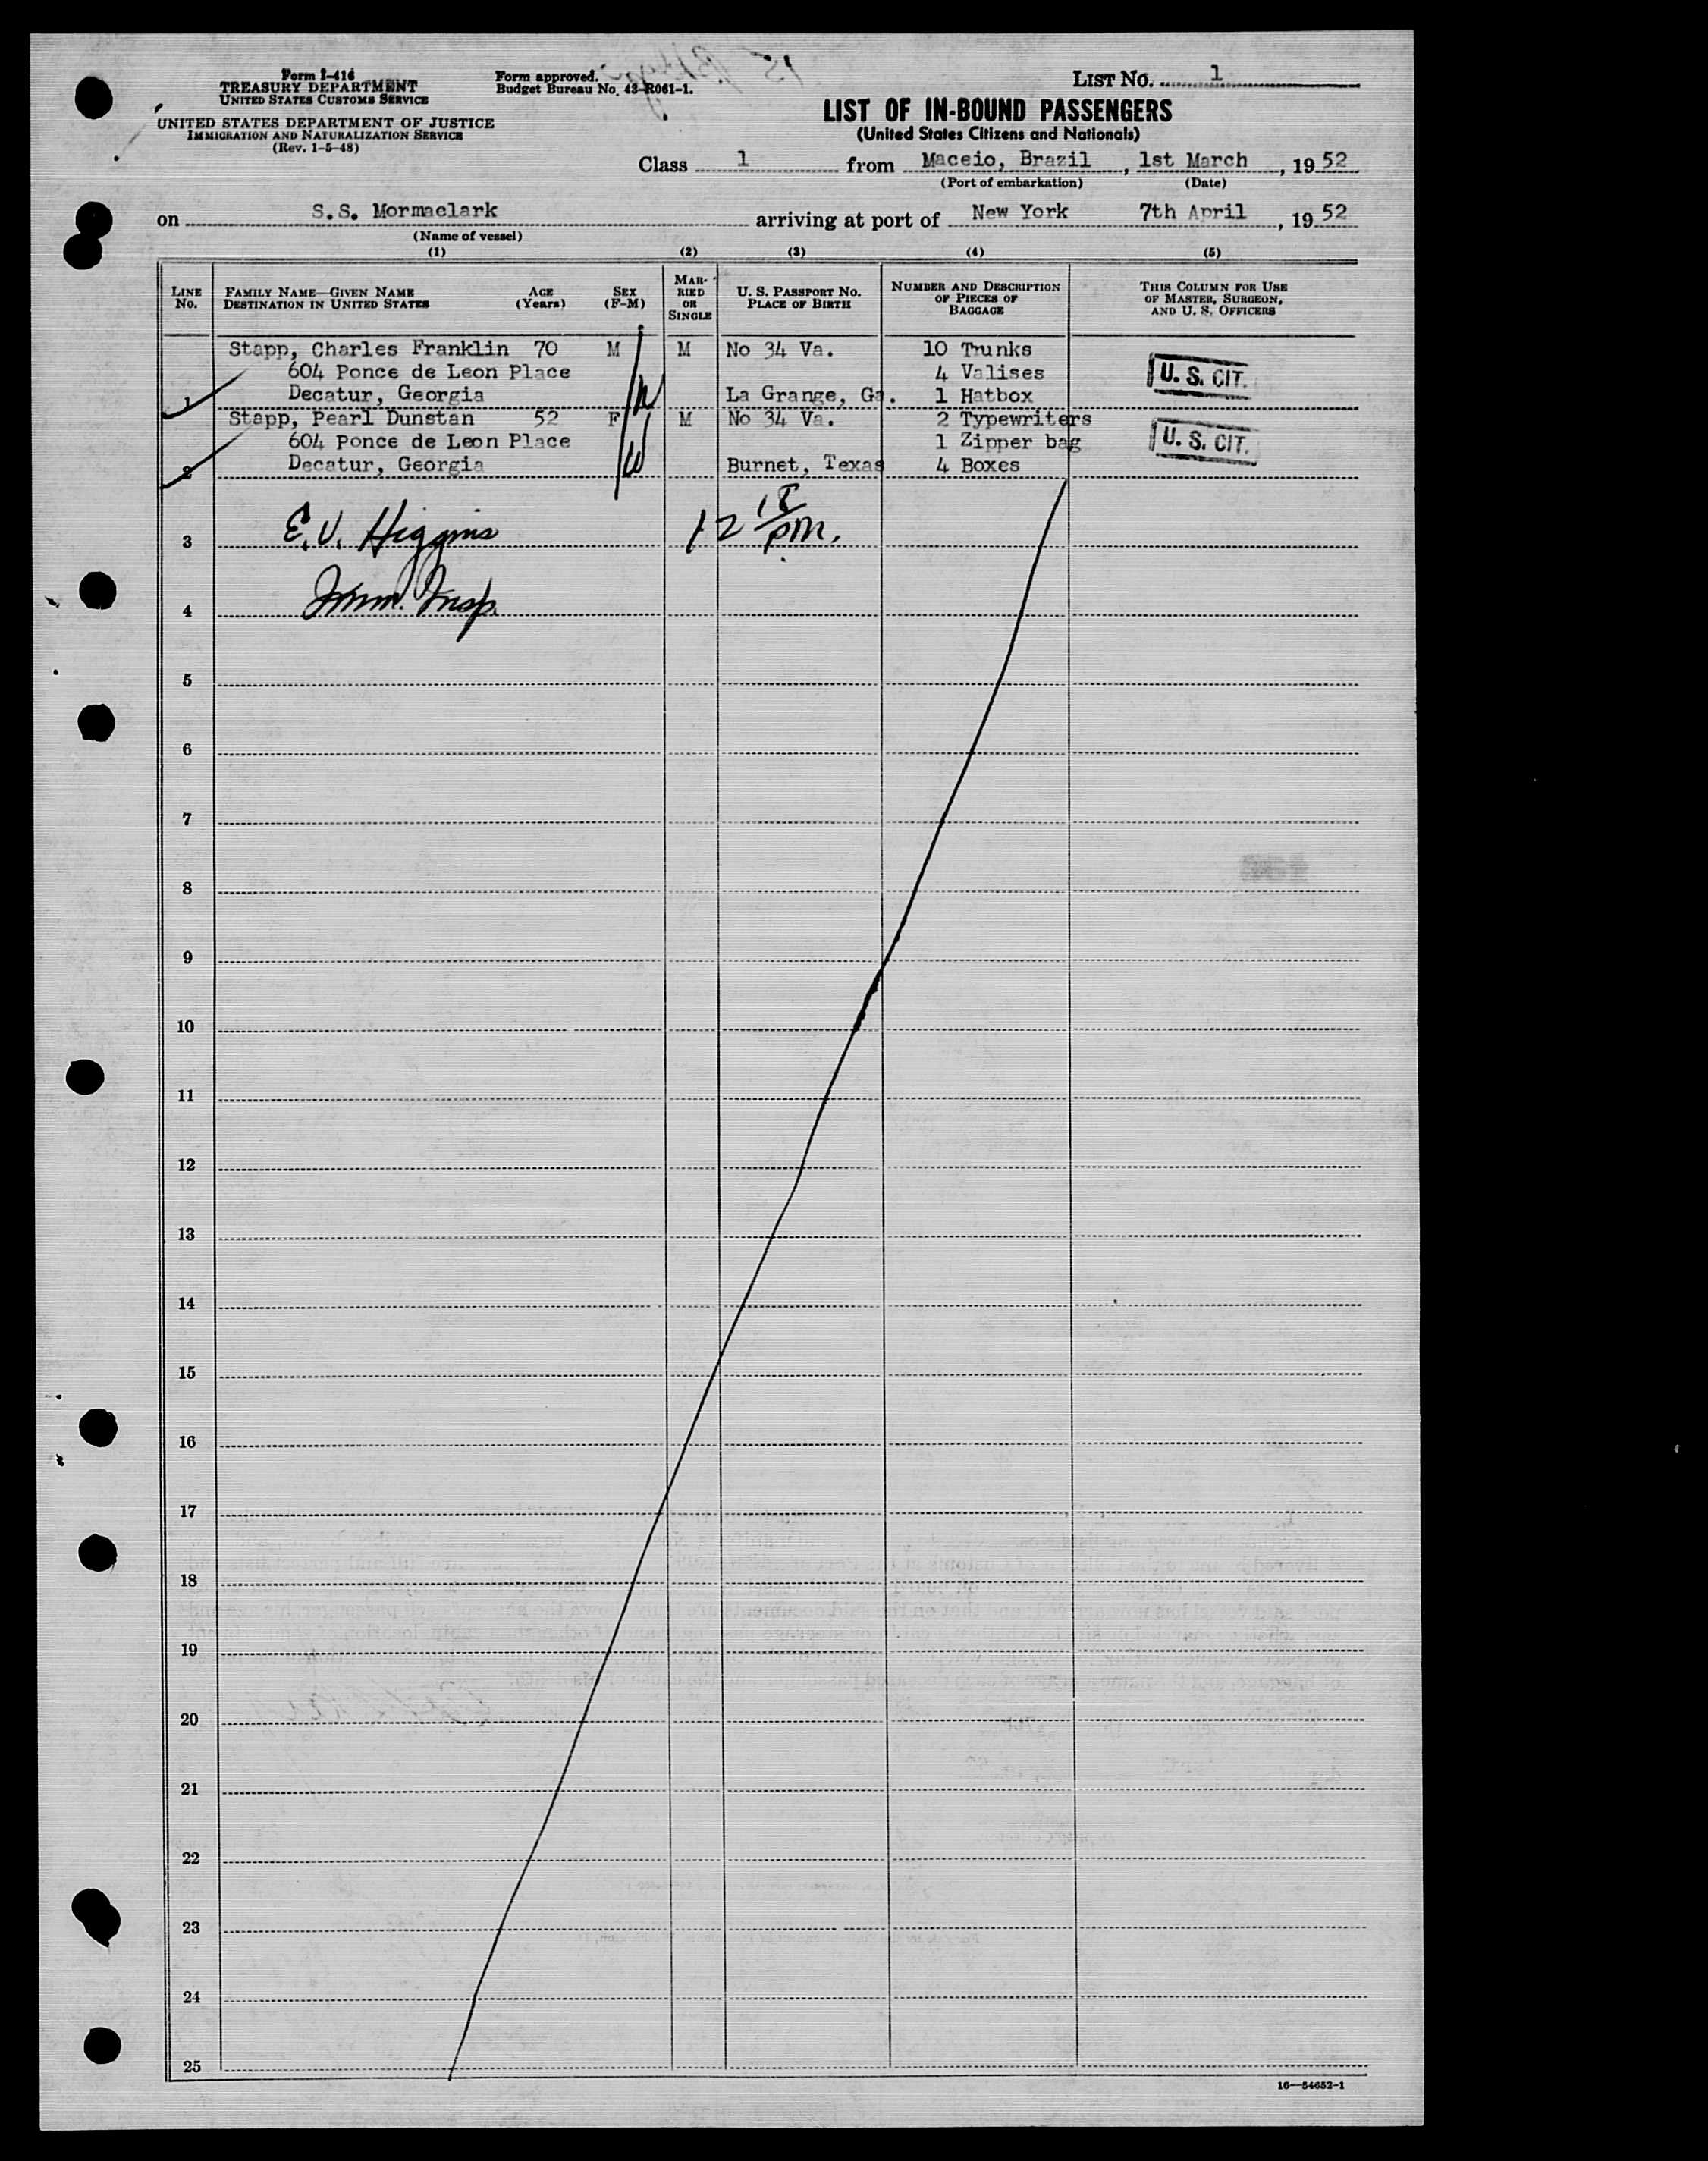 Form I-416
TREASURY DEPARTMENT
UNITED STATES CUSTOMS SERVICE
UNITED STATES DEPARTMENT OF JUSTICE
IMMIGRATION AND NATURALIZATION SERVICE
(Rev. 1-5-48)
Form approved.
Budget Bureau No. 43-R061-1.
LIST No. 1
LIST OF IN-BOUND PASSENGERS
(United States Citizens and Nationals)
Class 1 from Maceio, Brazil, 1st March, 1952
(Port of embarkation) (Date)
on S.S. Mormaclark arriving at port of New York 7th April, 1952
(Name of vessel)
(1) (2) (3) (4) (5)
LINE No. FAMILY NAME—GIVEN NAME DESTINATION IN UNITED STATES AGE (Years) SEX (F-M) MARRIED OR SINGLE U. S. PASSPORT NO. PLACE OF BIRTH NUMBER AND DESCRIPTION OF PIECES OF BAGGAGE THIS COLUMN FOR USE OF MASTER, SURGEON, AND U. S. OFFICERS
Stapp, Charles Franklin 70 M M No 34 Va. 10 Trunks
604 Ponce de Leon Place 4 Valises U. S. CIT.
1 Decatur, Georgia La Grange, Ga. 1 Hatbox
Stapp, Pearl Dunstan 52 F M No 34 Va. 2 Typewriters
604 Ponce de Leon Place 1 Zipper bag U. S. CIT.
2 Decatur, Georgia Burnet, Texas 4 Boxes
3 E.V. Higgins 12 18 pm.
4 Imm. Insp.
5
6
7
8
9
10
11
12
13
14
15
16
17
18
19
20
21
22
23
24
25
16—54652-1